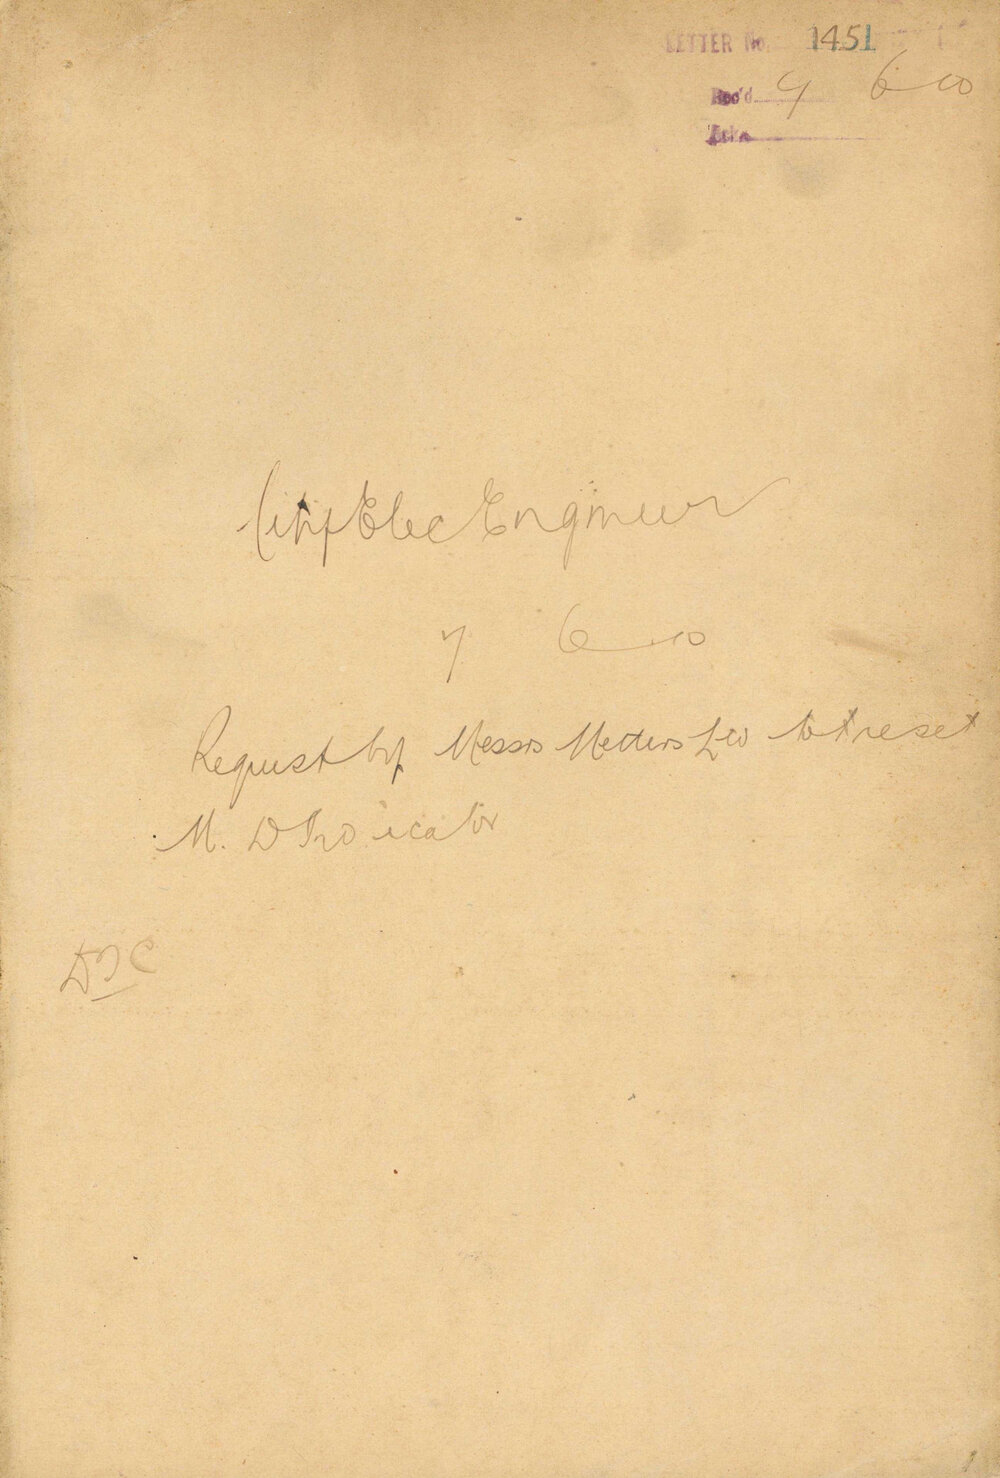 LETTER No. 1451
Rec'd 7 6 10
City Elec Engineer
7 6 10
Request by Messrs Metters Ltd to reset
M. D Indicator